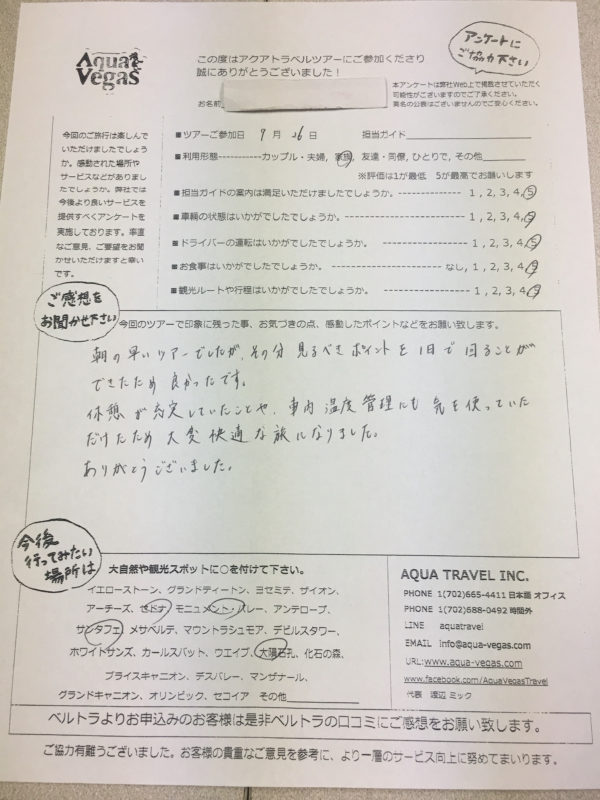 Aqua Vegas
この度はアクアトラベルツアーにご参加くださり
誠にありがとうございました！
アンケートに
ご協力下さい
本アンケートは弊社Web上で掲載させていただく
可能性がございますのでご了承ください。
実名の公表はございませんのでご安心ください。
お名前
今回のご旅行は楽しんで
いただけましたでしょう
か。感動された場所や
サービスなどがありまし
たでしょうか。弊社では
今後より良いサービスを
提供すべくアンケートを
実施しております。率直
なご意見、ご要望をお聞
かせいただけますと幸い
です。
■ツアーご参加日 9月26日 担当ガイド
■利用形態------------カップル・夫婦, 家族, 友達・同僚, ひとりで, その他
※評価は1が最低 5が最高でお願いします
■担当ガイドの案内は満足いただけましたでしょうか。---------------- 1 , 2, 3, 4, 5
■車輌の状態はいかがでしたでしょうか。---------------------------- 1 , 2, 3, 4, 5
■ドライバーの運転はいかがでしたでしょうか。 ------------------ 1 , 2, 3, 4, 5
■お食事はいかがでしたでしょうか。 ----------------------- なし, 1 , 2, 3, 4, 5
■観光ルートや行程はいかがでしたでしょうか。 ------------------ 1 , 2, 3, 4, 5
ご感想を
お聞かせ下さい
今回のツアーで印象に残った事、お気づきの点、感動したポイントなどをお願い致します。
朝の早いツアーでしたが、その分見るべきポイントを1日で回ることが
できたため良かったです。
休憩が充実していたことや、車内温度管理にも気を使っていた
だけたため大変快適な旅になりました。
ありがとうございました。
今後
行ってみたい
場所は
大自然や観光スポットに○を付けて下さい。
イエローストーン、グランドティートン、ヨセミテ、ザイオン、
アーチーズ、セドナ モニュメント・バレー、アンテロープ、
サンタフェ、メサベルテ、マウントラシュモア、デビルスタワー、
ホワイトサンズ、カールスバット、ウエイブ、大隕石孔、化石の森、
ブライスキャニオン、デスバレー、マンザナール、
グランドキャニオン、オリンピック、セコイア その他
AQUA TRAVEL INC.
PHONE 1(702)665-4411 日本語 オフィス
PHONE 1(702)688-0492 時間外
LINE aquatravel
EMAIL info@aqua-vegas.com
URL:www.aqua-vegas.com
www.facebook.com/AquaVegasTravel
代表 渡辺 ミック
ベルトラよりお申込みのお客様は是非ベルトラの口コミにご感想をお願い致します。
ご協力有難うございました。お客様の貴重なご意見を参考に、より一層のサービス向上に努めてまいります。